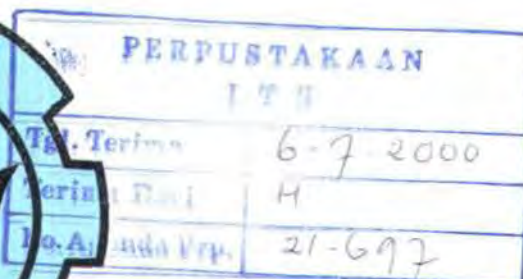 PERPUSTAKAAN
I T S
Tgl. Terima 6-7-2000
Terima Dari H
No. Agenda Prp. 21-697